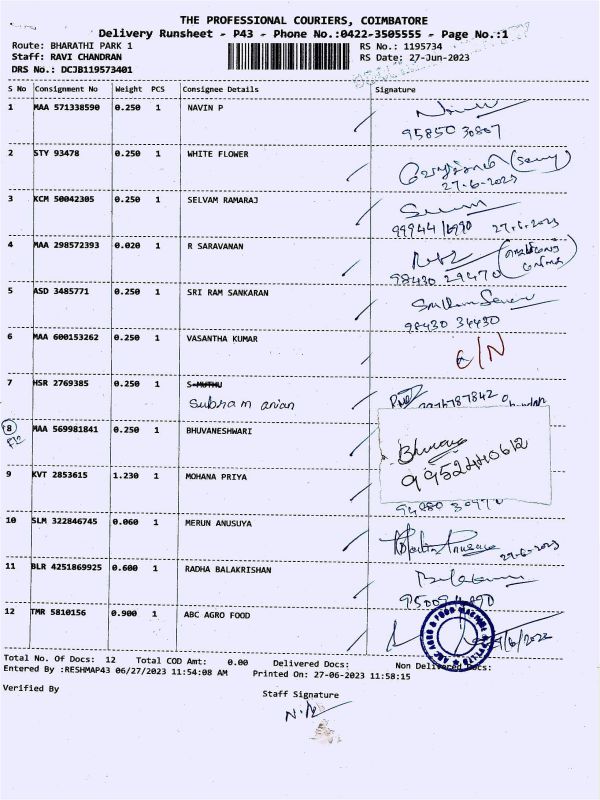 THE PROFESSIONAL COURIERS, COIMBATORE
Delivery Runsheet - P43 - Phone No.:0422-3505555 - Page No.:1
Route: BHARATHI PARK 1 RS No.: 1195734
Staff: RAVI CHANDRAN RS Date: 27-Jun-2023
DRS No.: DCJB119573401
S No Consignment No Weight PCS Consignee Details Signature
1 MAA 571338590 0.250 1 NAVIN P
95850 30807
2 STY 93478 0.250 1 WHITE FLOWER
27-6-2023
3 KCM 50042305 0.250 1 SELVAM RAMARAJ
99944 16990 27.6.2023
4 MAA 298572393 0.020 1 R SARAVANAN
98430 29470
5 ASD 3485771 0.250 1 SRI RAM SANKARAN
98430 34430
6 MAA 600153262 0.250 1 VASANTHA KUMAR
C/N
7 HSR 2769385 0.250 1 S MUTHU
Subram anian
8 MAA 569981841 0.250 1 BHUVANESHWARI
Bhuvana
9952440612
9 KVT 2853615 1.230 1 MOHANA PRIYA
10 SLM 322846745 0.060 1 MERUN ANUSUYA
27-6-2023
11 BLR 4251869925 0.600 1 RADHA BALAKRISHAN
12 TMR 5810156 0.900 1 ABC AGRO FOOD
Total No. Of Docs: 12 Total COD Amt: 0.00 Delivered Docs: Non Delivered Docs:
Entered By :RESHMAP43 06/27/2023 11:54:08 AM Printed On: 27-06-2023 11:58:15
Verified By Staff Signature